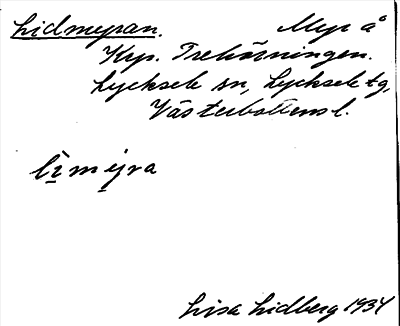 Lidmyran. Myr å
Krp. Trehörningen.
Lycksele sn, Lycksele tg,
Västerbottens l.
Lisa Lidberg 1934